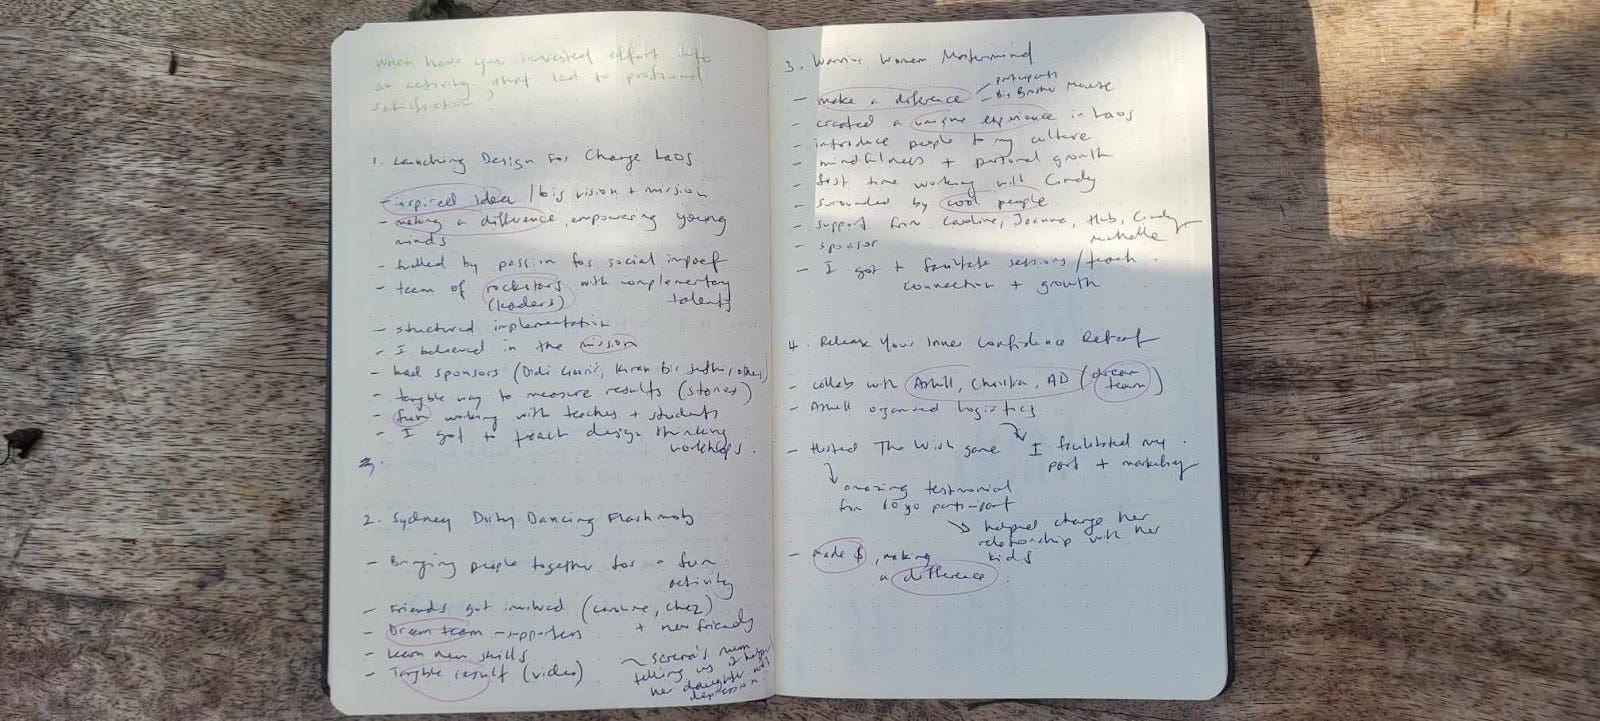 When have you invested effort into
an activity that led to profound
satisfaction?
1. Launching Design For Change Laos
- inspired idea / big vision + mission
- making a difference, empowering young
minds
- fuelled by passion for social impact
- team of rockstars with complementary
(leaders) talents
- structured implementation
- I believed in the mission
- had sponsors (Didi others)
- tangible way to measure results (stories)
- fun working with teachers + students
- I got to teach design thinking
workshops.
2. Sydney Dirty Dancing Flashmob
- Bringing people together for a fun
activity
- Friends got involved (Caroline, Chez)
+ new friends
- Dream team - supporters
- learn new skills
- Tangible result (video)
~ Serena's mum
telling us it helped
her daughter with
depression
3. Warrior Women Mastermind
- make a difference - participants
- Big Brother Mouse
- created a unique experience in Laos
- introduce people to my culture
- mindfulness + personal growth
- first time working with Cindy
- surrounded by cool people
- support from Caroline, Joanne, Hub, Cindy,
Michelle
- sponsor
- I got to facilitate sessions / teach.
connection + growth
4. Release Your Inner Confidence Retreat
- collab with AD (dream
team)
- organised logistics
- Hosted The Wish game I facilitated my
part + marketing
amazing testimonial
from 60 yo participant
helped change her
relationship with her
kids
- made $, making
a difference.